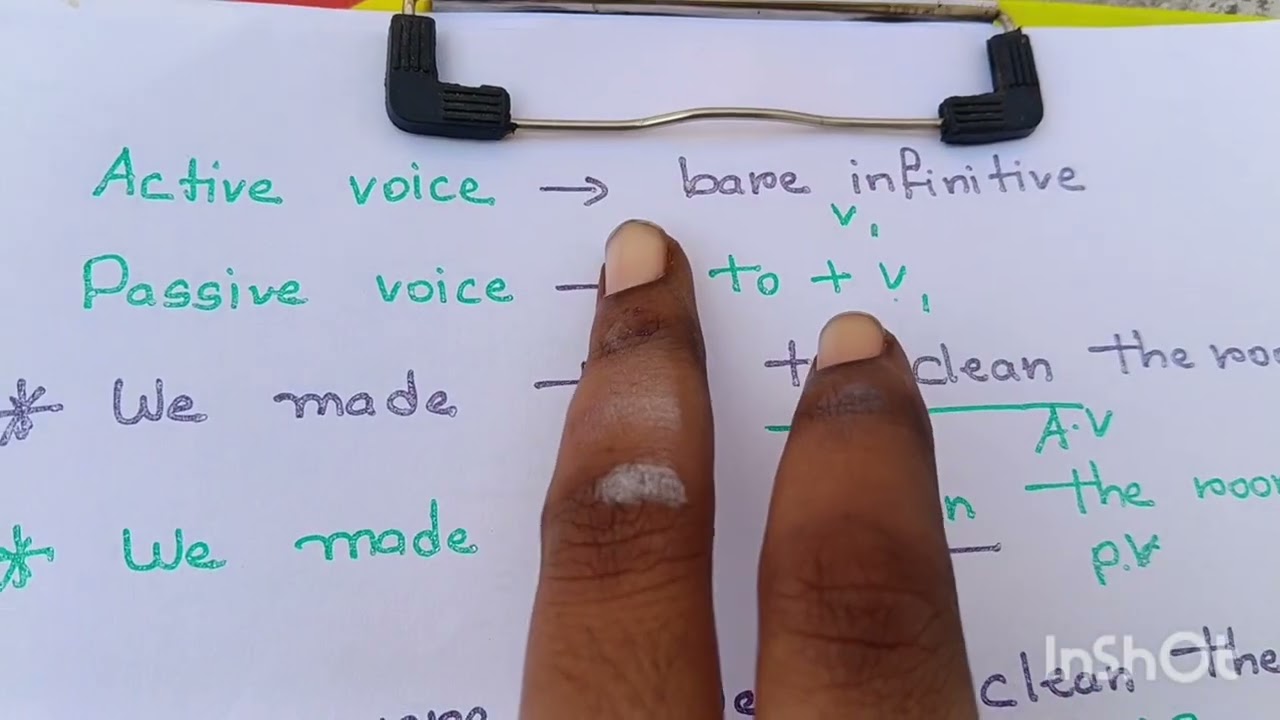 Active voice → bare infinitive
V1
Passive voice to + V1
* We made clean the
A.V
* We made the
P.V
clean the
InShOt